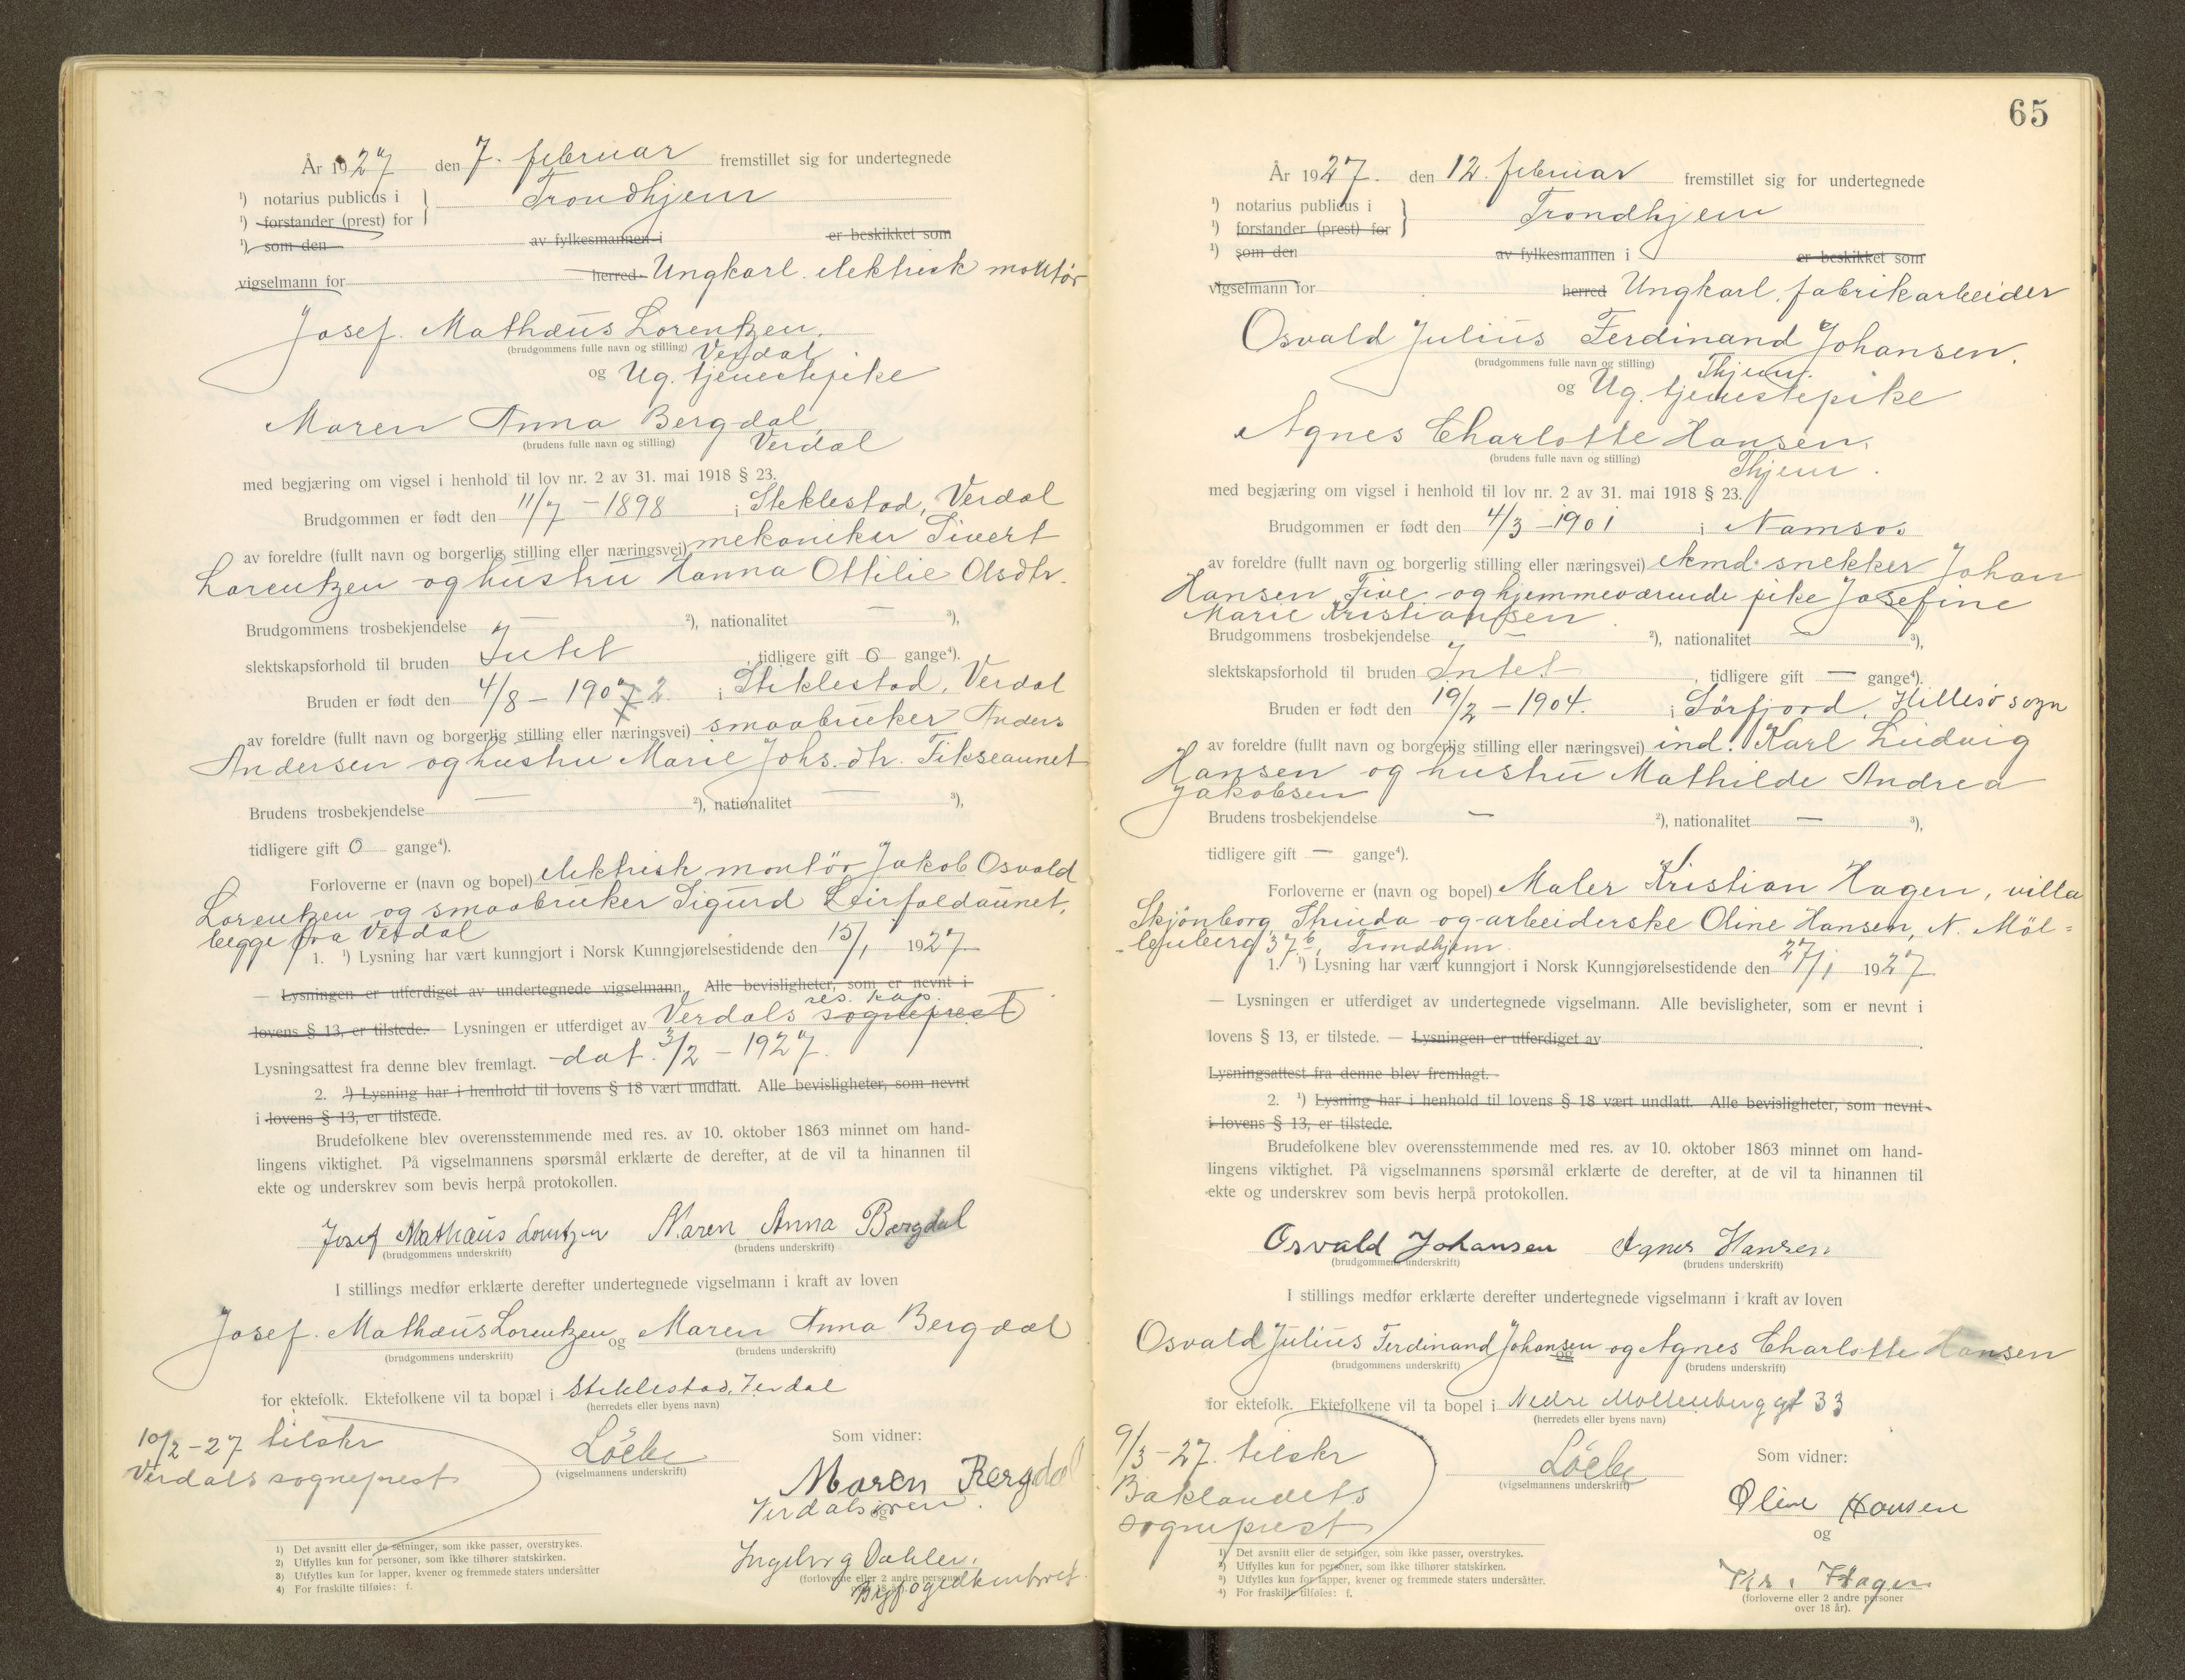 År 1927 den 7. februar fremstillet sig for undertegnede
¹) notarius publicus i
Trondhjem
¹) forstander (prest) for
¹) som den av fylkesmannen i er beskikket som
vigselmann for herred Ungkarl. elektrisk montør
Josef. Mathæus Lorentzen.
(brudgommens fulle navn og stilling) Verdal
og Ug. tjenestepike
Maren Anna Bergdal,
(brudens fulle navn og stilling) Verdal
med begjæring om vigsel i henhold til lov nr. 2 av 31. mai 1918 § 23.
Brudgommen er født den 11/7 - 1898 i Steklestad, Verdal
av foreldre (fullt navn og borgerlig stilling eller næringsvei) mekaniker Sivert
Lorentzen og hustru Hanna Ottilie Olsdtr.
Brudgommens trosbekjendelse — ²), nationalitet — ³),
slektskapsforhold til bruden Intet, tidligere gift 0 gange⁴).
Bruden er født den 4/8 - 1907 2. i Steklestad, Verdal
av foreldre (fullt navn og borgerlig stilling eller næringsvei) smaabruker Anders
Andersen og hustru Marie Johs.dtr. Tikseaunet
Brudens trosbekjendelse — ²), nationalitet — ³),
tidligere gift 0 gange⁴).
Forloverne er (navn og bopel) elektrisk montör Jakob Osvald
Lorentzen og smaabruker Sigurd Leirfaldaunet,
begge fra Verdal
1. ¹) Lysning har vært kunngjort i Norsk Kunngjørelsestidende den 15/1 1927
— Lysningen er utferdiget av undertegnede vigselmann. Alle bevisligheter, som er nevnt i
res. kap.
lovens § 13, er tilstede. — Lysningen er utferdiget av Verdals sogneprest
Lysningsattest fra denne blev fremlagt. -dat. 3/2 - 1927.
2. ¹) Lysning har i henhold til lovens § 18 vært undlatt. Alle bevisligheter, som nevnt
i lovens § 13, er tilstede.
Brudefolkene blev overensstemmende med res. av 10. oktober 1863 minnet om hand-
lingens viktighet. På vigselmannens spørsmål erklærte de derefter, at de vil ta hinannen til
ekte og underskrev som bevis herpå protokollen.
Josef Mathæus Lorentzen Maren Anna Bergdal
(brudgommens underskrift) (brudens underskrift)
I stillings medfør erklærte derefter undertegnede vigselmann i kraft av loven
Josef. Mathæus Lorentzen og Maren Anna Bergdal
(brudgommens underskrift) (brudens underskrift)
for ektefolk. Ektefolkene vil ta bopæl i Steklestad, Verdal
(herredets eller byens navn)
10/2 - 27 tilskr
Verdals sogneprest
(vigselmannens underskrift)
Som vidner:
Maren Bergdal
Verdalsøren.
og
Ingeborg Dahlen.
(forloverne eller 2 andre personer
Byfogedkontoret
1) Det avsnitt eller de setninger, som ikke passer, overstrykes.
2) Utfylles kun for personer, som ikke tilhører statskirken.
3) Utfylles kun for lapper, kvener og fremmede staters undersåtter
4) For fraskilte tilføies: f.
65
År 1927. den 12. februar fremstillet sig for undertegnede
¹) notarius publicus i
Trondhjem
¹) forstander (prest) for
¹) som den av fylkesmannen i er beskikket som
vigselmann for herred Ungkarl, fabrikarbeider
Osvald Julius Ferdinand Johansen.
(brudgommens fulle navn og stilling) Thjem.
og Ug. tjenestepike
Agnes Charlotte Hansen,
(brudens fulle navn og stilling) Thjem.
med begjæring om vigsel i henhold til lov nr. 2 av 31. mai 1918 § 23.
Brudgommen er født den 4/3 - 1901 i Namsos
av foreldre (fullt navn og borgerlig stilling eller næringsvei) ekmd. snekker Johan
Hansen Five og hjemmeværende pike Josefine
Marie Kristiansen.
Brudgommens trosbekjendelse — ²), nationalitet — ³),
slektskapsforhold til bruden Intet, tidligere gift — gange⁴).
Bruden er født den 19/2 - 1904. i Sörfjord, Hillesö sogn
av foreldre (fullt navn og borgerlig stilling eller næringsvei) ind. Karl Ludvig
Hansen og hustru Mathilde Andrea
Jakobsen
Brudens trosbekjendelse — ²), nationalitet — ³),
tidligere gift — gange⁴).
Forloverne er (navn og bopel) Maler Kristian Hagen, villa
Skjönborg, Strinda og arbeiderske Oline Hansen, N. Möl=
-lenberg 37ᵇ, Trondhjem.
1. ¹) Lysning har vært kunngjort i Norsk Kunngjørelsestidende den 27/1 1927
— Lysningen er utferdiget av undertegnede vigselmann. Alle bevisligheter, som er nevnt i
lovens § 13, er tilstede. — Lysningen er utferdiget av
Lysningsattest fra denne blev fremlagt.
2. ¹) Lysning har i henhold til lovens § 18 vært undlatt. Alle bevisligheter, som nevnt
i lovens § 13, er tilstede.
Brudefolkene blev overensstemmende med res. av 10. oktober 1863 minnet om hand-
lingens viktighet. På vigselmannens spørsmål erklærte de derefter, at de vil ta hinannen til
ekte og underskrev som bevis herpå protokollen.
Osvald Johansen Agnes Hansen
(brudgommens underskrift) (brudens underskrift)
I stillings medfør erklærte derefter undertegnede vigselmann i kraft av loven
Osvald Julius Ferdinand Johansen og Agnes Charlotte Hansen
(brudgommens underskrift) og (brudens underskrift)
for ektefolk. Ektefolkene vil ta bopel i Nedre Møllenberg gt 33
(herredets eller byens navn)
9/3 - 27. tilskr
Baklandets
sogneprest
(vigselmannens underskrift)
Som vidner:
Oline Hansen
og
Kr. Hagen
(forloverne eller 2 andre personer
over 18 år).
¹) Det avsnitt eller de setninger, som ikke passer, overstrykes.
²) Utfylles kun for personer, som ikke tilhører statskirken.
³) Utfylles kun for lapper, kvener og fremmede staters undersåtter.
⁴) For fraskilte tilføies: f.